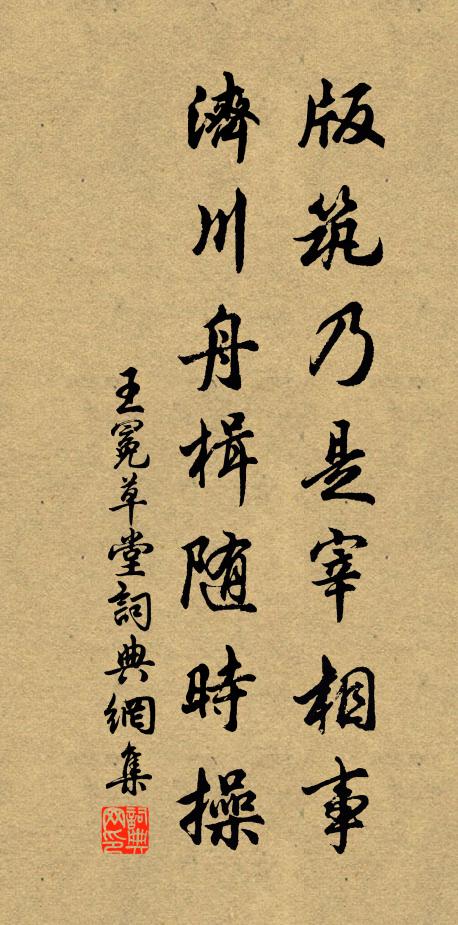 版筑乃是宰相事
濟川舟楫随時操
王冕草堂詞典網集
詞典網印